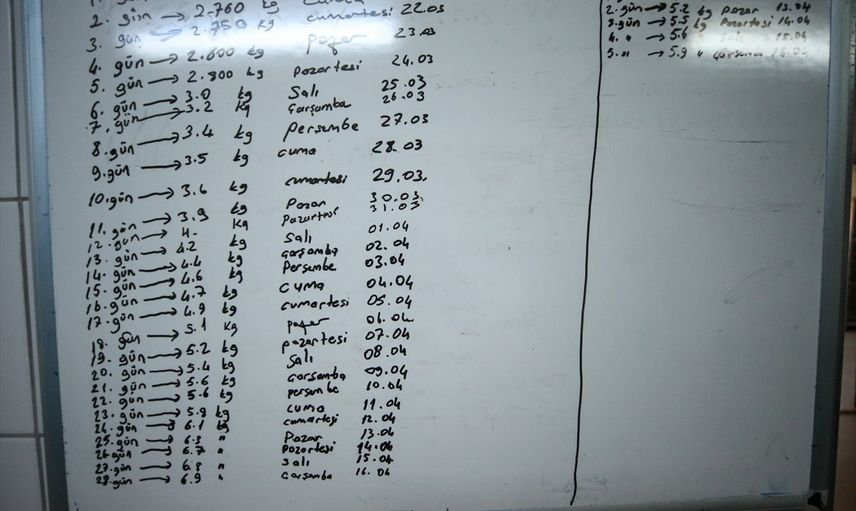 2. gün → 2.760 kg cumartesi 22.03
3. gün → 2.750 kg pazar 23.03
4. gün → 2.600 kg pazartesi 24.03
5. gün → 2.800 kg Salı 25.03
6. gün → 3.0 kg Çarşamba 26.03
7. gün → 3.2 kg Perşembe 27.03
8. gün → 3.4 kg cuma 28.03
9. gün → 3.5 kg cumartesi 29.03.
10. gün → 3.6 kg Pazar 30.03.
11. gün → 3.9 kg Pazartesi 31.03
12. gün → 4.- kg Salı 01.04
13. gün → 4.2 kg Çarşamba 02.04
14. gün → 4.4 kg Perşembe 03.04
15. gün → 4.6 kg cuma 04.04
16. gün → 4.7 kg cumartesi 05.04
17. gün → 4.9 kg pazar 06.04
18. gün → 5.1 kg pazartesi 07.04
19. gün → 5.2 kg Salı 08.04
20. gün → 5.4 kg Çarşamba 09.04
21. gün → 5.6 kg perşembe 10.04
22. gün → 5.6 kg cuma 11.04
23. gün → 5.9 kg cumartesi 12.04
24. gün → 6.1 kg Pazar 13.04
25. gün → 6.3 " Pazartesi 14.04
26. gün → 6.7 " Salı 15.04
27. gün → 6.8 " Çarşamba 16.04
28. gün → 6.9 "
2. gün → 5.2 kg pazar 13.04
3. gün → 5.5 kg Pazartesi 14.04
4. " → 5.6 Salı 15.04
5. " → 5.9 " Çarşamba 16.04